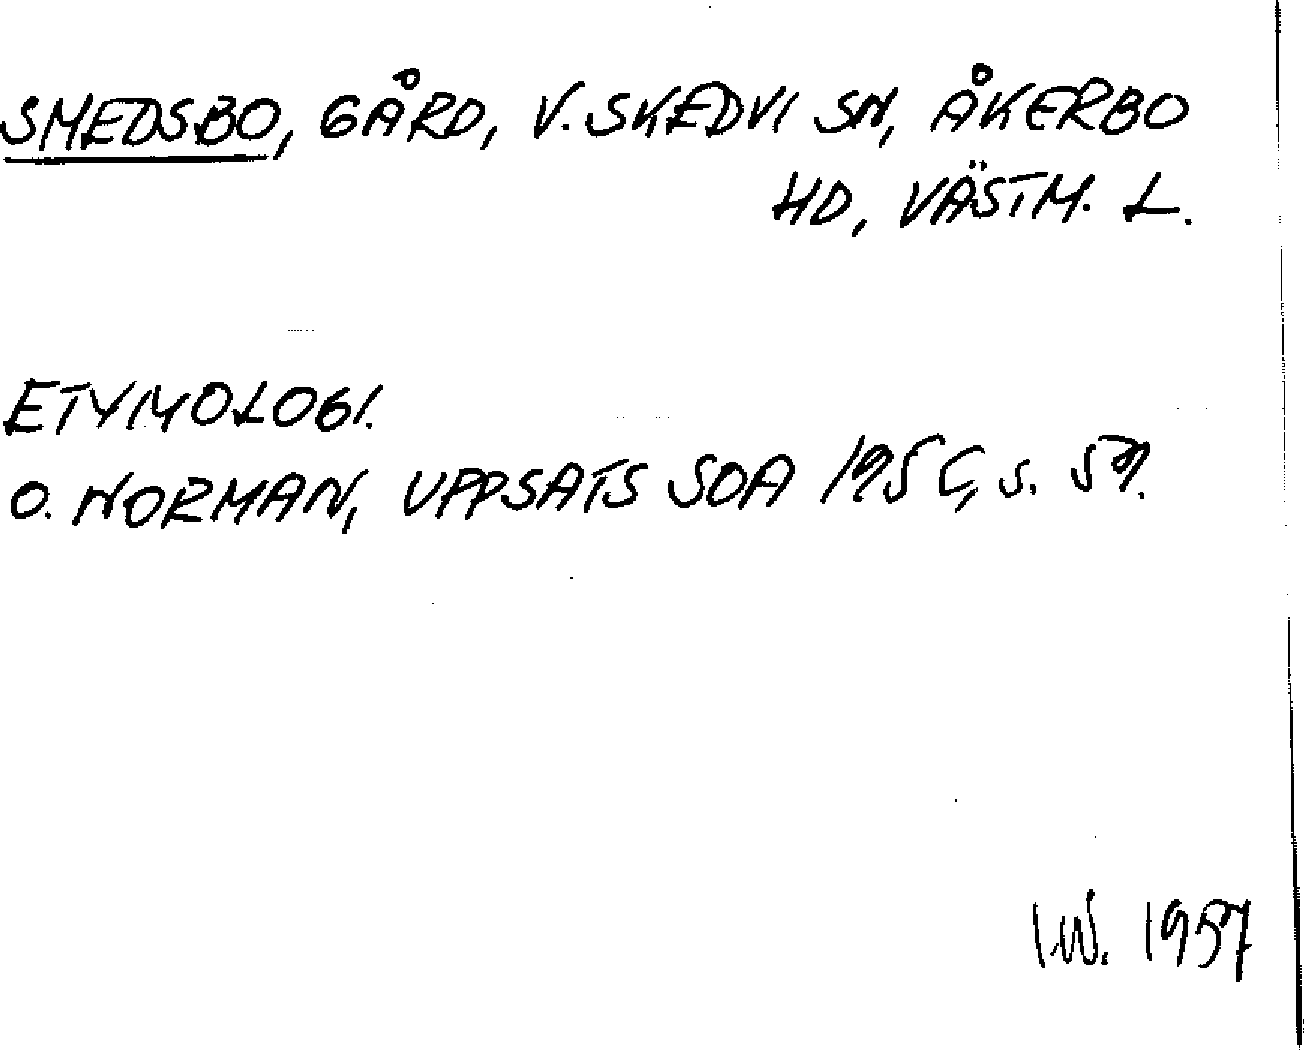 SMEDSBO, GÅRD, V. SKEDVI SN, ÅKERBO
HD, VÄSTM. L.
ETYMOLOGI.
O. NORMAN, UPPSATS SOA s.
I.W. 1957